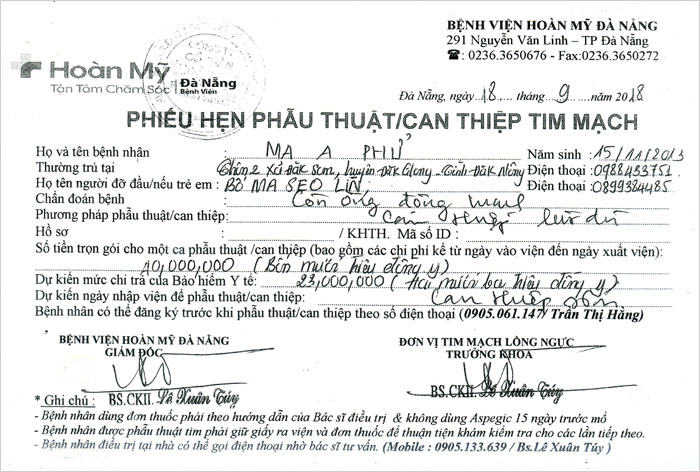 BỆNH VIỆN HOÀN MỸ ĐÀ NẴNG
291 Nguyễn Văn Linh – TP Đà Nẵng
☎: 0236.3650676 - Fax:0236.3650272
Hoàn Mỹ
Tận Tâm Chăm Sóc
Đà Nẵng
Bệnh Viện
Đà Nẵng, ngày 18 tháng 9 năm 2018
PHIẾU HẸN PHẪU THUẬT/CAN THIỆP TIM MẠCH
Họ và tên bệnh nhân MA A PHỬ Năm sinh : 15/11/2013
Thường trú tại Thôn 2 Xã Đăk Som, huyện Đăk Glong - Tỉnh Đăk Nông Điện thoại : 0988433751
Họ tên người đỡ đầu/nếu trẻ em : Bố MA SEO LÌN, Điện thoại : 0899384485
Chẩn đoán bệnh Còn ống động mạch
Phương pháp phẫu thuật/can thiệp: Can thiệp bít dù
Hồ sơ / KHTH. Mã số ID :
Số tiền trọn gói cho một ca phẫu thuật /can thiệp (bao gồm các chi phí kể từ ngày vào viện đến ngày xuất viện):
40,000,000 (Bốn mươi triệu đồng y)
Dự kiến mức chi trả của Bảo hiểm Y tế: 23,000,000 (Hai mươi ba triệu đồng y)
Dự kiến ngày nhập viện để phẫu thuật/can thiệp: Can thiệp sớm
Bệnh nhân có thể đăng ký trước khi phẫu thuật/can thiệp theo số điện thoại (0905.061.147/ Trần Thị Hằng)
BỆNH VIỆN HOÀN MỸ ĐÀ NẴNG
GIÁM ĐỐC
ĐƠN VỊ TIM MẠCH LỒNG NGỰC
TRƯỞNG KHOA
BS.CKII. Lê Xuân Túy
BS.CKII. Lê Xuân Túy
* Ghi chú :
- Bệnh nhân dùng đơn thuốc phải theo hướng dẫn của Bác sĩ điều trị & không dùng Aspegic 15 ngày trước mổ
- Bệnh nhân được phẫu thuật tim phải giữ giấy ra viện và đơn thuốc để thuận tiện khám kiểm tra cho các lần tiếp theo.
- Bệnh nhân điều trị tại nhà có thể gọi điện thoại nhờ bác sĩ tư vấn. (Mobile : 0905.133.639 / Bs.Lê Xuân Túy )